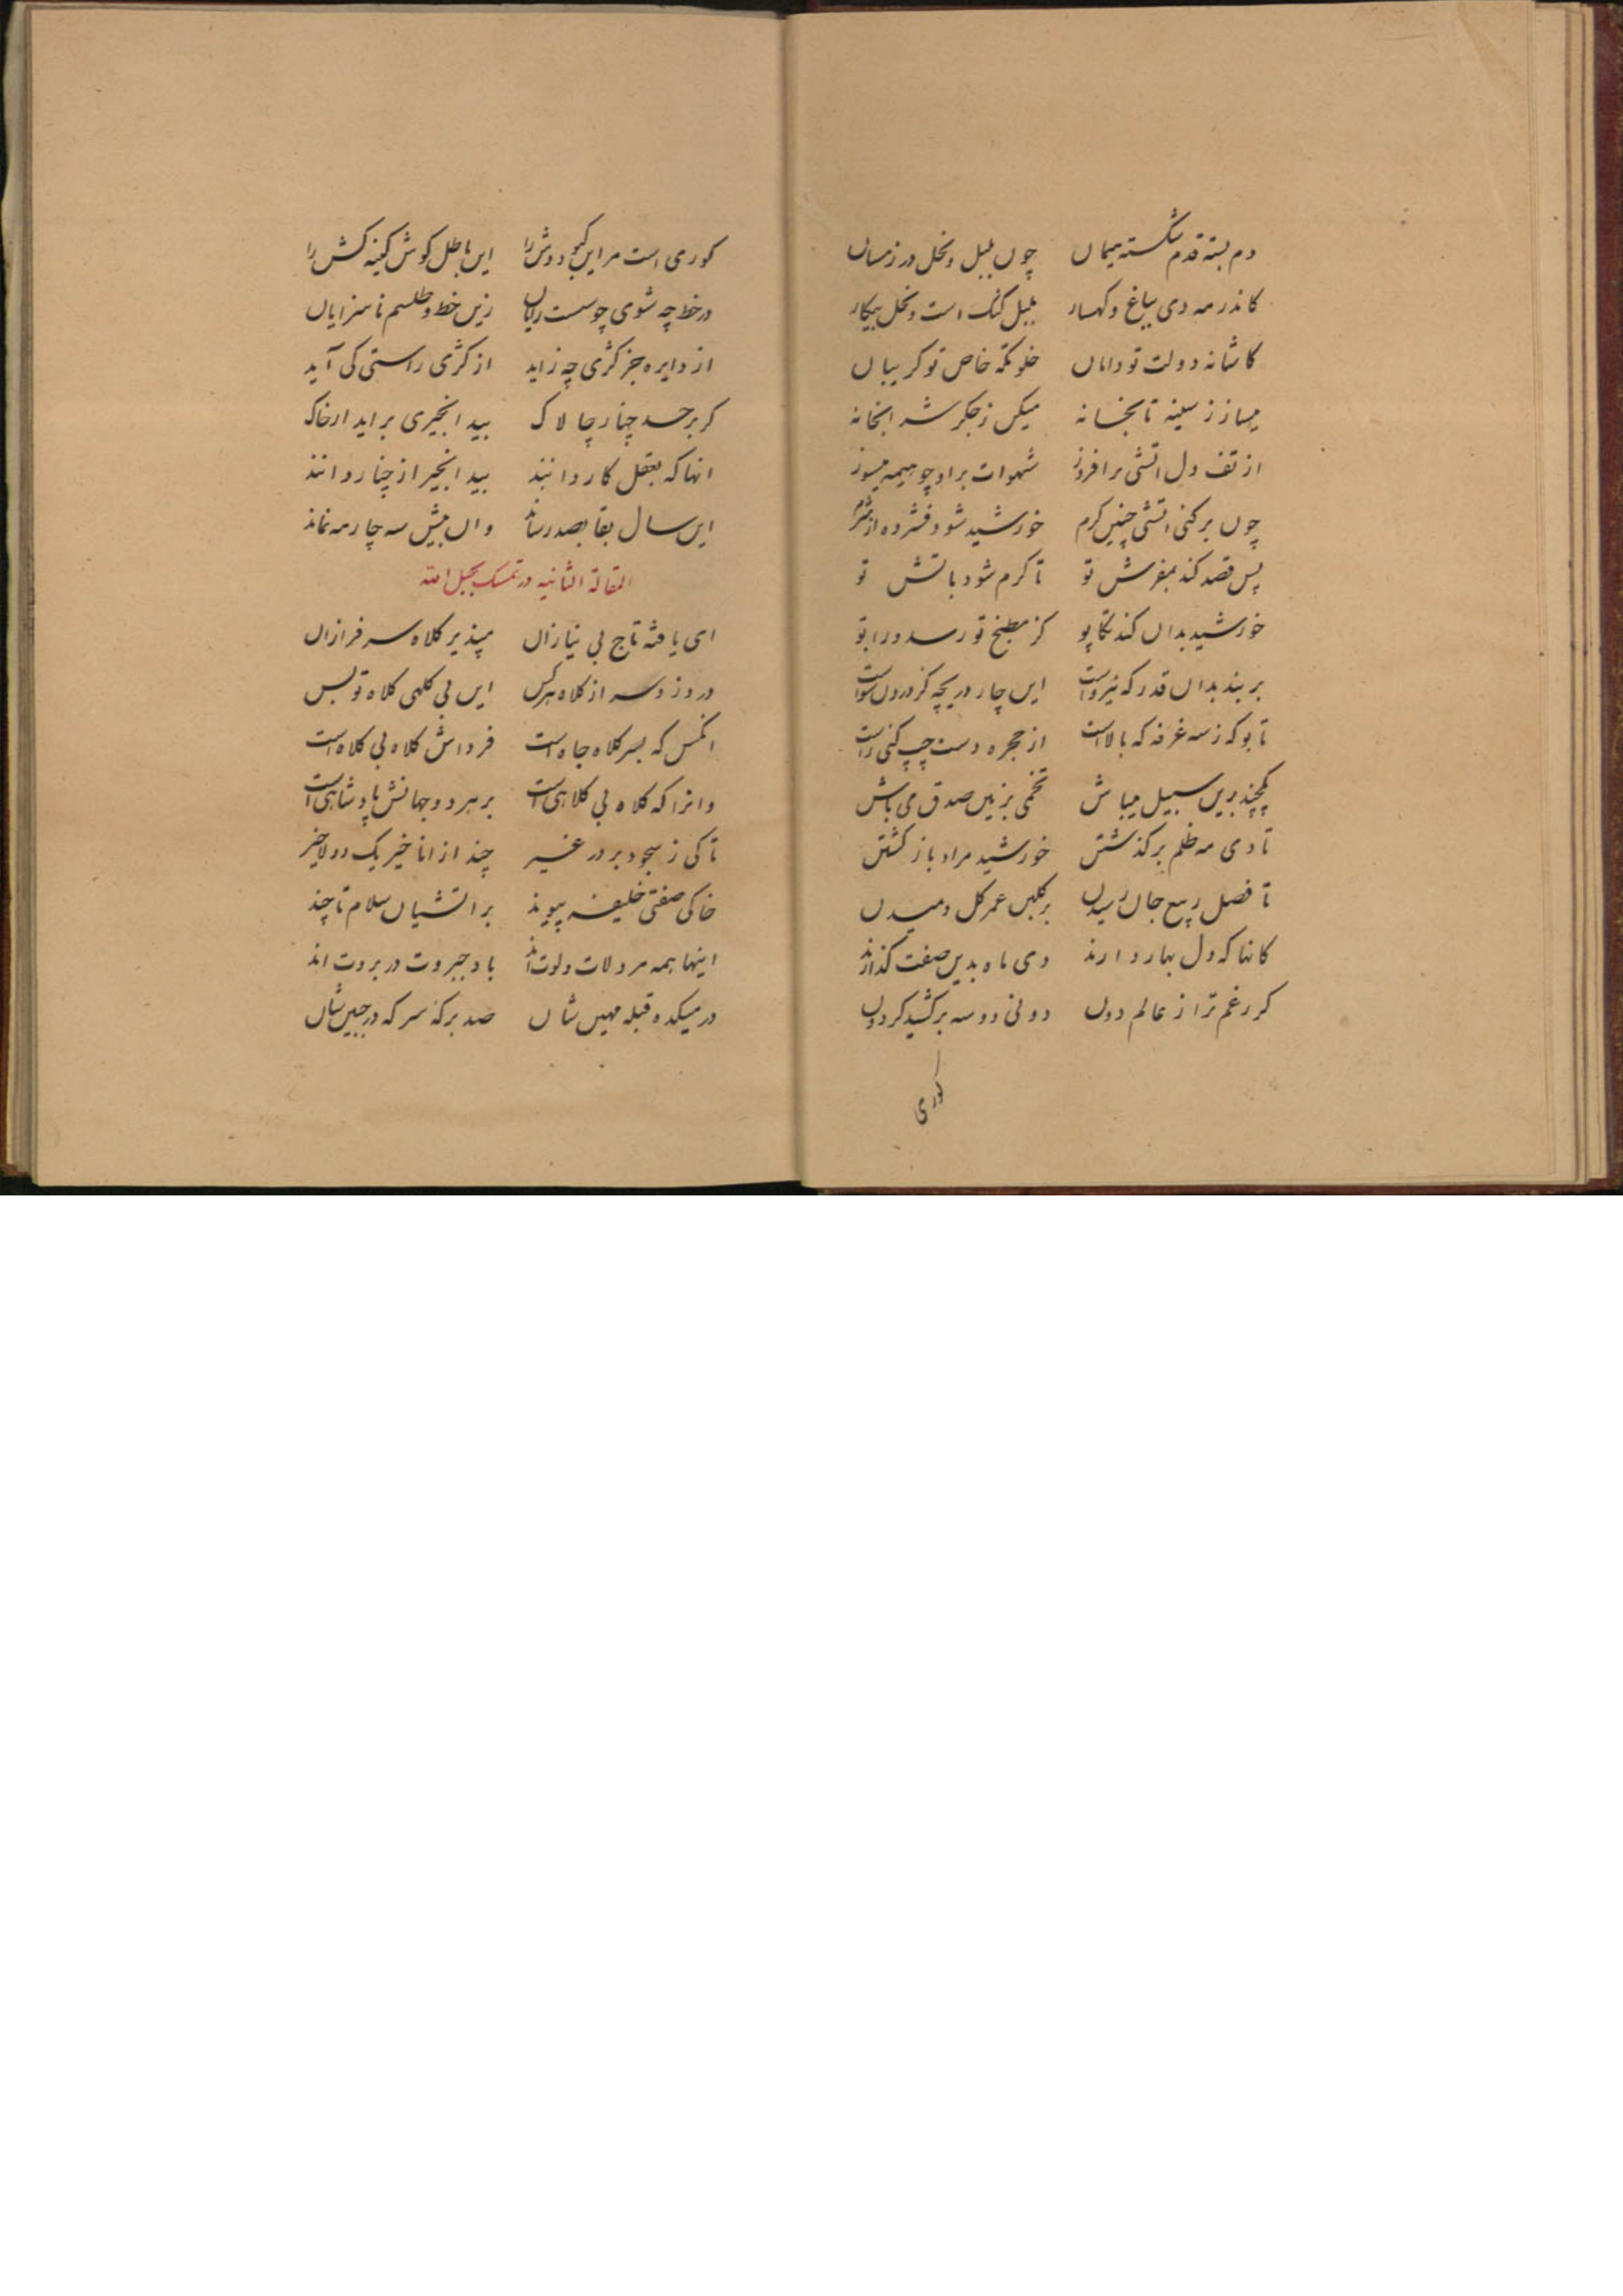 دم بسته قدم شکسته میمان چون بلبل و نخل در زمستان
کاندر مه دی بباغ و کهسار بلبل کنک است و نخل بیکار
کاشانه دولت تو دامان خلوتکه خاص تو کریبان
میساز ز سینه تابخانه میکن ز جکر شرابخانه
از تف دل اتشی برافروز شهوات برا و چو هیمه میسوز
چون برکنی اتشی چنین کرم خورشید شود فشرده از شرم
پس قصد کند بمفرش تو تا کرم شود باتش تو
خورشید بدان کند تکاپو کز مطبخ تو رسد ورا بو
بربند بدان قدر که نیرواست این چار دریچه کز درون سواست
تا بو که ز سه غرفه که بالاست از حجره دست چپ کنی راست
یکچند برین سبیل میباش تخمی بزمین صدق می پاش
تا دی مه ظلم برکذشتن خورشید مراد باز کشتن
تا فصل ربیع جان رسیدن بر کلبن عمر کل دمیدن
کانها که دل بهار دارند دی ماه بدین صفت کذارند
کر رغم ترا ز عالم دون دونی دو سه برکشید کردون
کوری
کوری است مر این کبود وش را این باطل کوش کینه کش را
در خط چه شوی چو سست رایان زین خط و طلسم ناسزایان
از دایره جز کژی چه زاید از کژی راستی کی آید
کر بر حسد چنار چالاک بید انجیری براید از خاک
انها که بعقل کاردانند بید انجیر از چنار دانند
این سال بقا بصد رساند وان بیش سه چار مه نماند
المقالة الثانیه در تمسک بحبل الله
ای یافته تاج بی نیازان مپذیر کلاه سرفرازان
دردزد سر از کلاه هرکس این بی کلهی کلاه تو بس
انکس که بسر کلاه جاه است فرداش کلاه بی کلاه است
وانرا که کلاه بی کلاهی است بر هر دو جهانش پادشاهی است
تا کی ز سجود بر در غیر چند از انا خیر یک دو لاخیر
خاکی صفتی خلیفه پیوند بر اتشیان سلام تا چند
اینها همه مرد لات و لوت اند باد جبروت در بروت اند
در میکده قبله مهین شان صد برکه سرکه در جبین شان